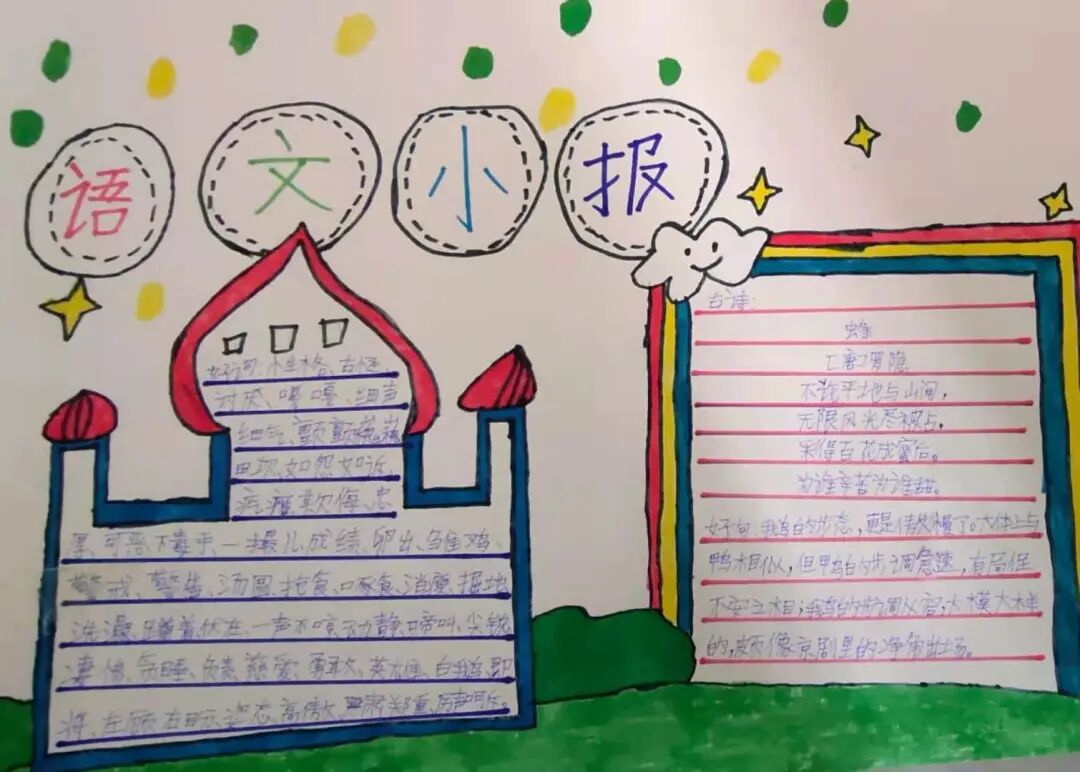 语文小报
好词:性格、古怪、
讨厌、嘎嘎、细声
细气、颤颤巍巍
如怨如诉、
疙瘩、欺侮、忠
厚、可恶、下毒手、一撮儿、成绩、卵出、雏鸡、
警戒、警告、汤圆、抢食、啄食、消磨、掘地
洗澡、蹲着、伏在、一声不吭、动静、啼叫、尖锐
凄惨、负责、慈爱、勇敢、英雄、白鹅、即
将、左顾右盼、姿态、高傲、严肃、郑重、厉声呵斥。
古诗:
蜂
[唐]罗隐
不论平地与山间,
无限风光尽被占。
采得百花成蜜后。
为谁辛苦为谁甜。
好句:鹅的步态,更是傲慢了。大体上与
鸭相似,但鸭的步调急速,有局促
不安之相;鹅的步调从容,大模大样
的,颇像京剧里的净角出场。